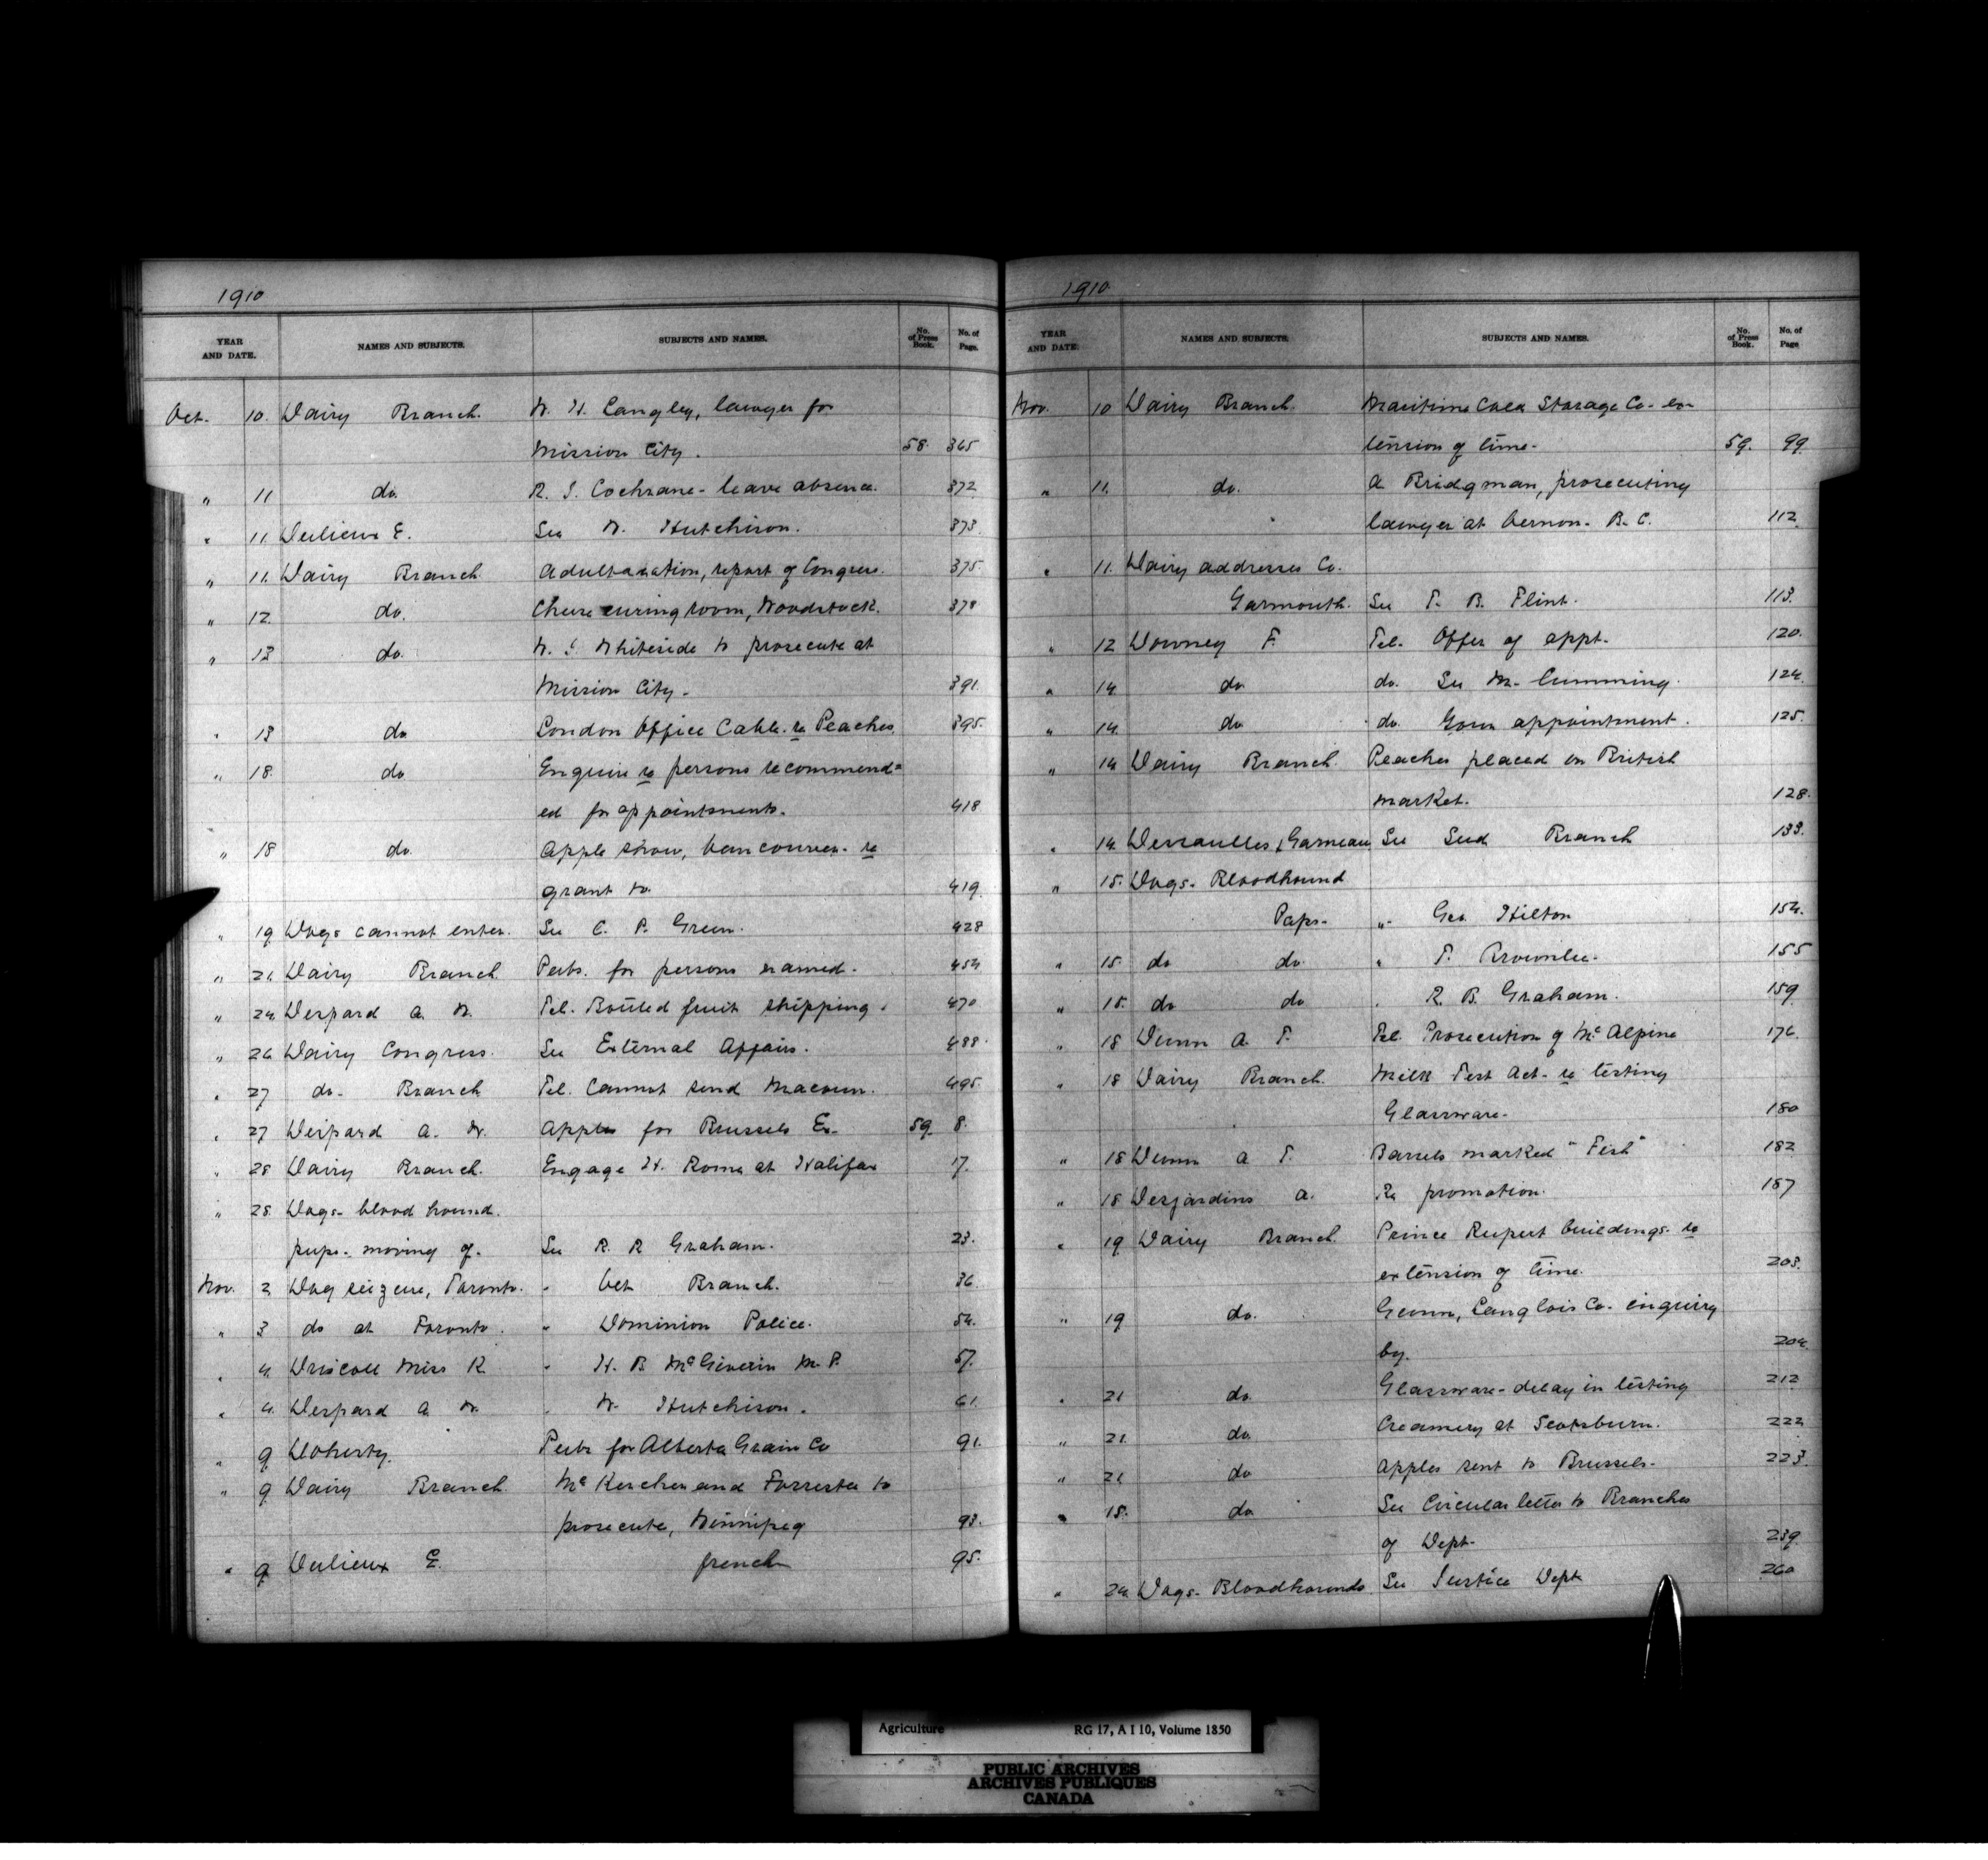 1910
YEAR AND DATE. NAMES AND SUBJECTS. SUBJECTS AND NAMES. No. of Press Book. No. of Page.
Oct. 10. Dairy Branch. W. H. Langley, lawyer for
Mission City. 58. 365
" 11 do. R. S. Cochrane - leave absence. 372
" 11. Dulieux E. See W. Hutchison. 373
" 11. Dairy Branch Adulteration, report of Congress. 375.
" 12. do. Cheese curing room, Woodstock. 378
" 13 do. W. J. Whiteside to prosecute at
Mission City - 391.
" 13 do London Office Cable. re Peaches 395.
" 18. do Enquire re persons recommend=
ed for appointments. 418
" 18 do. Apple show, Vancouver - re
grant to. 419.
" 19 Dogs cannot enter. See C. P. Green. 428
" 21. Dairy Branch. Pubs. for persons named. 454
" 24. Despard A. W. Tel. Bottled fruit shipping. 470.
" 26 Dairy Congress. See External Affairs. 488.
" 27 do. Branch Tel. Cannot send Macoun. 495.
" 27 Despard A. W. Apples for Brussels Ex- 59. 8.
" 28 Dairy Branch. Engage H. Rome at Halifax 17.
" 28. Dogs - blood hound.
pups - moving of. See R. R Graham. 23.
Nov. 2 Dog seizure, Toronto. " Vet Branch. 36.
" 3 do at Toronto. " Dominion Police. 54.
" 4. Driscoll Miss K. " H. B McGiverin M.P. 57.
" 4. Despard A. W. " W. Hutchison. 61.
" 9. Doherty. Pubs for Alberta Grain Co 91.
" 9 Dairy Branch McKercher and Forrester to
prosecute, Winnipeg 93.
" 9 Dulieux E. french 95.
1910
YEAR AND DATE. NAMES AND SUBJECTS. SUBJECTS AND NAMES. No. of Press Book. No. of Page
Nov. 10 Dairy Branch. Maritime Cold Storage Co - ex-
tension of time - 59. 99.
" 11. do. A Bridgman, prosecuting
lawyer at Vernon - B.C. 112.
" 11. Dairy addresses Co.
Yarmouth. See T. B. Flint. 113.
" 12 Downey F. Tel. Offer of appt. 120.
" 14. do do. See M. Cumming. 124.
" 14. do do. Your appointment. 125.
" 14 Dairy Branch. Peaches placed on British
market. 128.
" 14. Dessaulles & Garneau See Seed Branch 133.
" 15. Dogs - Bloodhound
Pups - " Geo Hilton 154.
" 15. do do. " T. Brownlee. 155
" 15. do do " R. B. Graham. 159
" 18 Dunn A. T. Tel. Prosecution of McAlpine 176.
" 18 Dairy Branch. Milk Test Act - re testing
Glassware - 180
" 18 Dunn A T. Barrels marked "Fish" 182
" 18 Desjardins A. Re promotion. 187
" 19 Dairy Branch. Prince Rupert buildings - re
extension of time. 203.
" 19 do. Gunn, Langlois Co. enquiry
by. 204.
" 21 do. Glassware - delay in testing 212
" 21. do. Creamery at Scotsburn. 222
" 21 do Apples sent to Brussels - 223.
" 18. do. See Circular letter to Branches
of Dept. 239.
" 24. Dogs - Bloodhounds See Justice Dept 260
Agriculture RG 17, A I 10, Volume 1850
PUBLIC ARCHIVES
ARCHIVES PUBLIQUES
CANADA